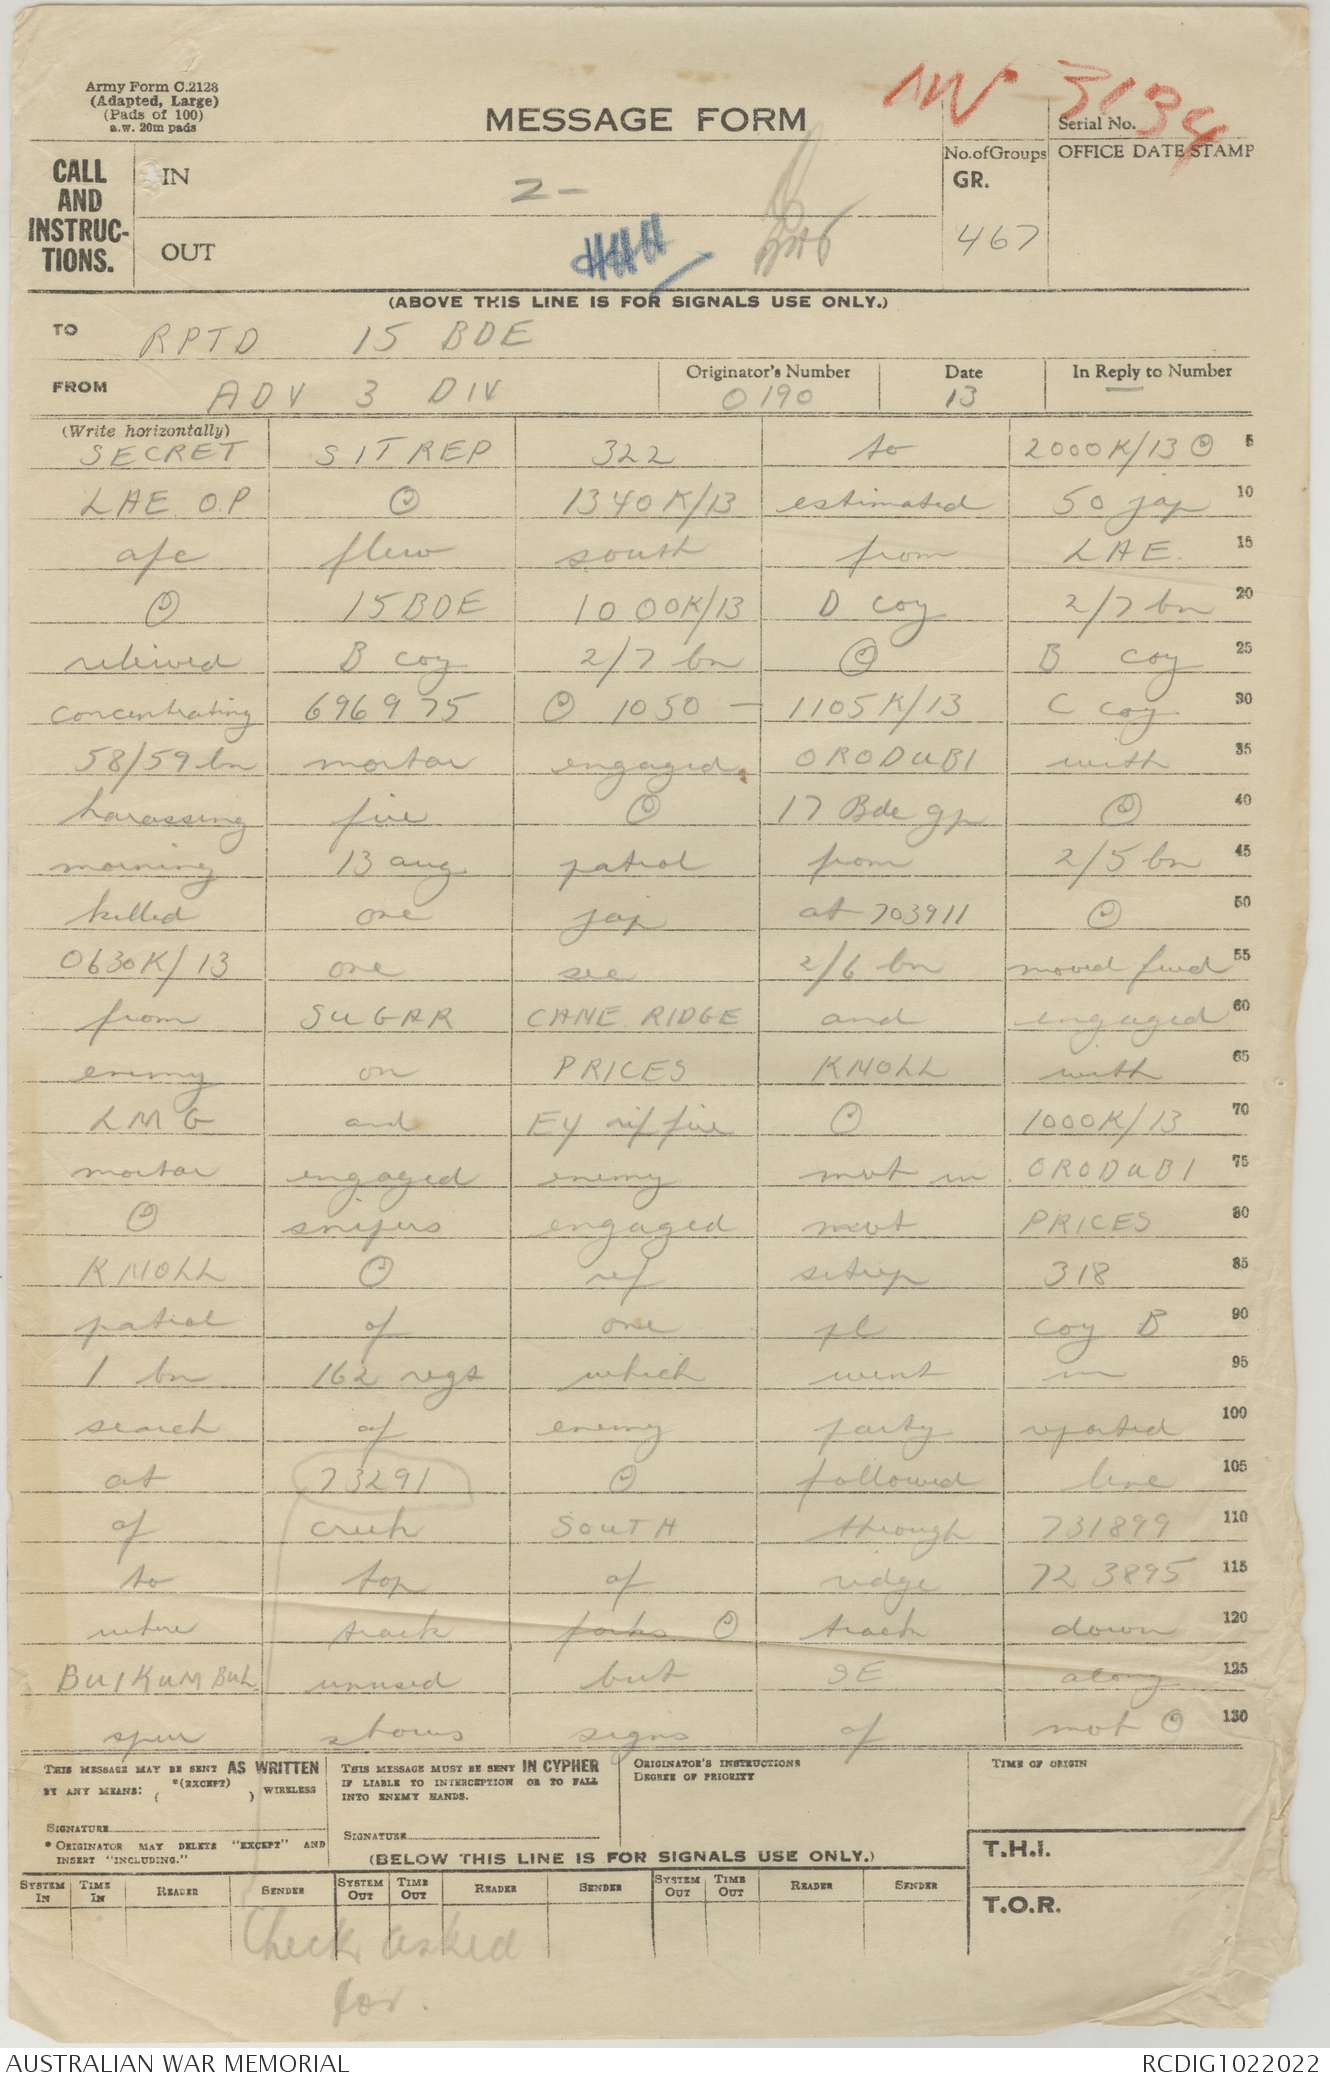 Army Form C.2128
(Adapted, Large)
(Pads of 100)
a.w. 20m pads
MESSAGE FORM
3134
Serial No.
CALL AND INSTRUC-TIONS.
IN
2-
No. of Groups
GR.
467
OFFICE DATE STAMP
OUT
(ABOVE THIS LINE IS FOR SIGNALS USE ONLY.)
TO RPTD 15 BDE
FROM ADV 3 DIV
Originator's Number 0190
Date 13
In Reply to Number
(Write horizontally)
SECRET SITREP 322 to 2000K/13 ⊙ 5
LAE O.P ⊙ 1340K/13 estimated 50 jap 10
a/c flew south from LAE. 15
⊙ 15 BDE 1000K/13 D coy 2/7 bn 20
releived B coy 2/7 bn ⊙ B coy 25
concentrating 696975 ⊙ 1050 - 1105K/13 C coy 30
58/59 bn mortar engaged ORODUBI with 35
harassing fire ⊙ 17 Bde gp ⊙ 40
morning 13 aug patrol from 2/5 bn 45
killed one jap at 703911 ⊙ 50
0630K/13 one sec 2/6 bn moved fwd 55
from SUGAR CANE RIDGE and engaged 60
enemy on PRICES KNOLL with 65
LMG and EY rif fire ⊙ 1000K/13 70
mortar engaged enemy mvt in ORODUBI 75
⊙ snipers engaged mvt PRICES 80
KNOLL ⊙ ref sitrep 318 85
patrol of one pl coy B 90
1 bn 162 regt which went in 95
search of enemy party reported 100
at 73291 ⊙ followed line 105
of creek SOUTH through 731899 110
to top of ridge 723895 115
where track forks ⊙ track down 120
BUIKUMBUL unused but SE along 125
spur shows signs of mvt ⊙ 130
THIS MESSAGE MAY BE SENT AS WRITTEN BY ANY MEANS: *(EXCEPT) ( ) WIRELESS
SIGNATURE
* ORIGINATOR MAY DELETE "EXCEPT" AND INSERT "INCLUDING."
THIS MESSAGE MUST BE SENT IN CYPHER IF LIABLE TO INTERCEPTION OR TO FALL INTO ENEMY HANDS.
SIGNATURE
ORIGINATOR'S INSTRUCTIONS
DEGREE OF PRIORITY
TIME OF ORIGIN
(BELOW THIS LINE IS FOR SIGNALS USE ONLY.)
T.H.I.
SYSTEM IN TIME IN READER SENDER SYSTEM OUT TIME OUT READER SENDER SYSTEM OUT TIME OUT READER SENDER
T.O.R.
Check asked
for.
AUSTRALIAN WAR MEMORIAL
RCDIG1022022